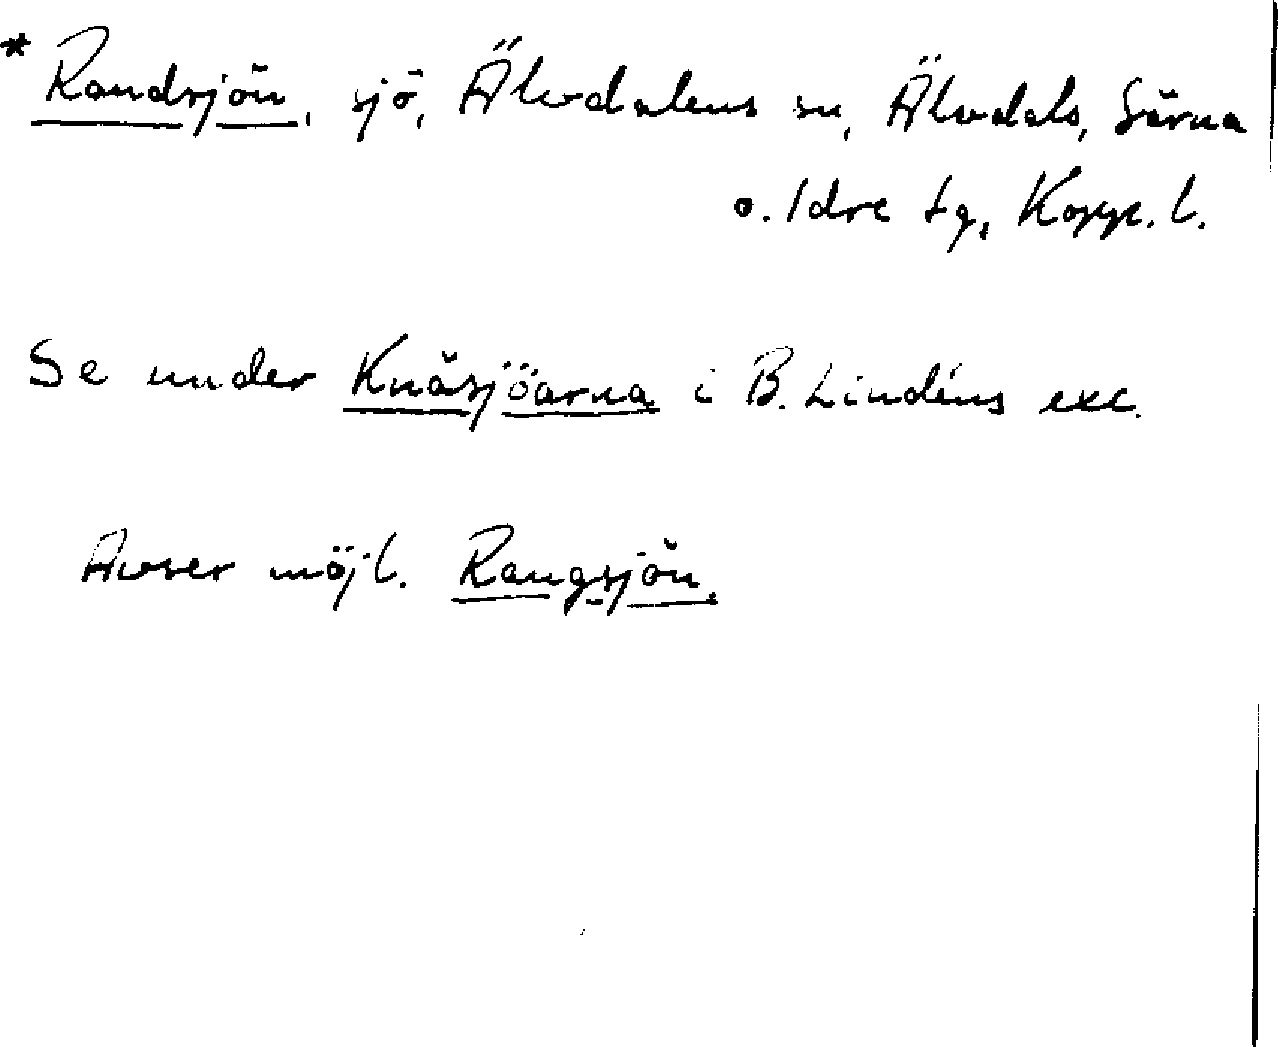 * Randsjön, sjö, Älvdalens sn, Älvdals, Särna
o. Idre tg, Kopp. l.
Se under Knåsjöarna i B. Lindéns exc.
Avser möjl. Rangsjön.